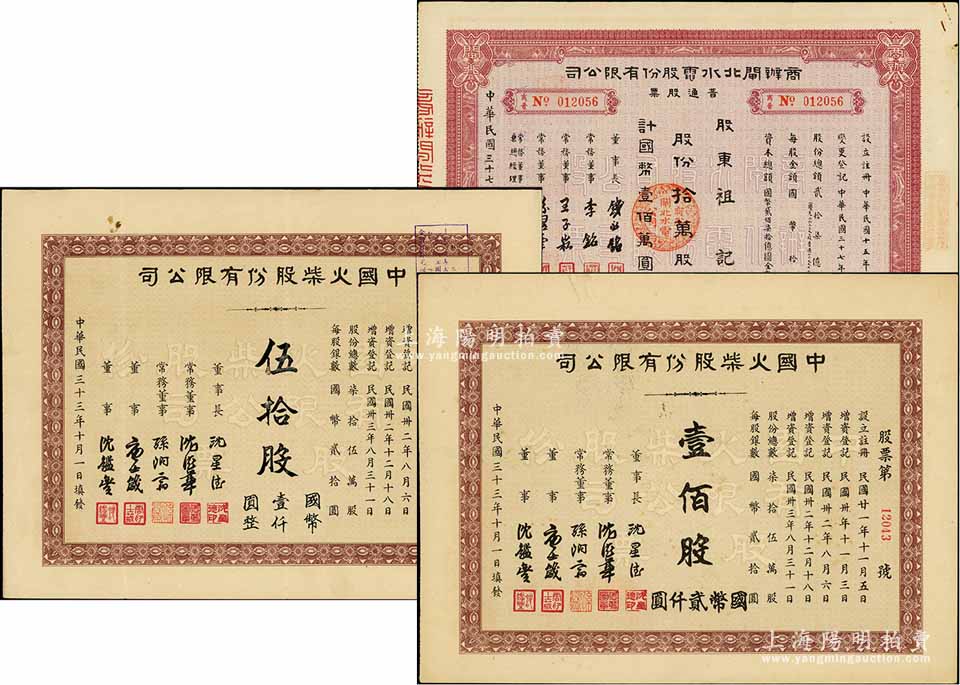 商辦閘北水電股份有限公司
普通股票
No 012056
No 012056
設立註冊 中華民國十五年
變更登記 中華民國三十七年
股份總額 貳拾柒億
每股金額 國幣拾
資本總額 國幣貳佰柒拾億圓全
股東祖記
股份拾萬股
計國幣壹佰萬圓
董事長
常務董事 李銘
常務董事 王子崧
常務董事
常務董事兼總經理
中華民國三十七
中國火柴股份有限公司
增資登記 民國卅二年八月六日
增資登記 民國卅二年十二月十八日
增資登記 民國卅三年八月三十一日
股份總數 柒拾伍萬股
每股銀數 國幣貳拾圓
伍拾股
國幣
壹仟
圓整
董事長 沈星德
常務董事
常務董事 孫洞翁
董事
董事 沈鑑堂
中華民國三十三年十月一日填發
中國火柴股份有限公司
股票第 12043 號
設立註冊 民國廿一年十一月五日
增資登記 民國卅年十一月三日
增資登記 民國卅二年八月六日
增資登記 民國卅二年十二月十八日
增資登記 民國卅三年八月三十一日
股份總數 柒拾伍萬股
每股銀數 國幣貳拾圓
壹佰股
國幣貳仟圓
董事長 沈星德
常務董事
常務董事 孫洞翁
董事
董事 沈鑑堂
中華民國三十三年十月一日填發
上海陽明拍賣
www.yangmingauction.com
上海陽明拍賣
www.yangmingauction.com